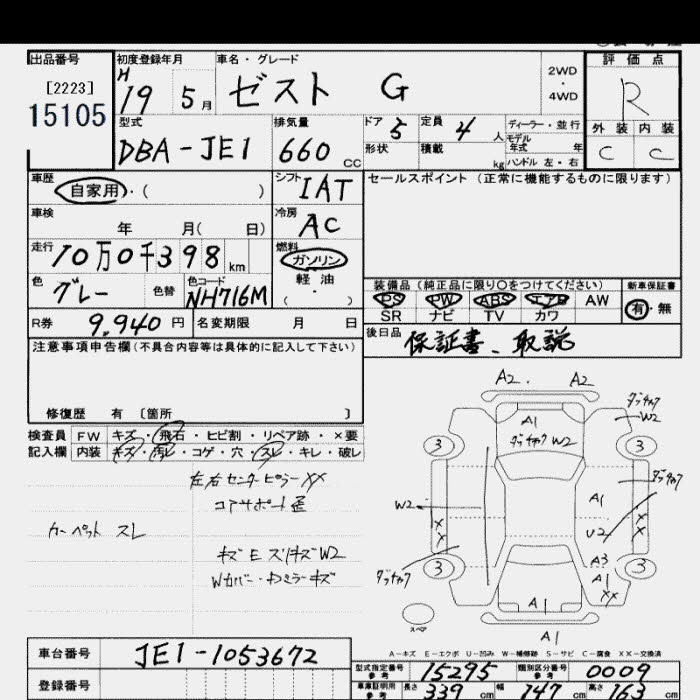 出品番号
[2223]
15105
初度登録年月
H 19 5月
車名・グレード
ゼスト G
2WD
・
4WD
評価点
R
外装 内装
C C
型式
DBA-JE1
排気量
660 CC
ドア 5
定員 4 人
ディーラー・並行
モデル
年式 年
形状
積載 kg
ハンドル 左・右
車歴
自家用・( )
シフト IAT
セールスポイント (正常に機能するものに限ります)
車検
年 月( 日)
冷房 AC
走行
10万0千398 km
燃料
ガソリン
軽油
( ・ )
色
グレー
色替
色コード
NH716M
装備品(純正品に限り○をつけてください)
新車保証書
PS PW ABS エアB AW
SR ナビ TV カワ
有・無
R券 9,940円
名変期限 月 日
後日品 保証書、取説
注意事項申告欄(不具合内容等は具体的に記入して下さい)
修復歴 有 〔箇所 〕
検査員
記入欄
FW キズ・飛石・ヒビ割・リペア跡・×要
内装 キズ・汚レ・コゲ・穴・スレ・キレ・破レ
左右センターピラーXX
コアサポート歪
カーペット スレ
キズE スリキズW2
Wカバー・Dミラーキズ
A2. A2
A1
W2
W2
3 3
W2
A1
U2
X
X
X
X
A3
A1
XX
3 3
A1
A1
スペア
A-キズ E-エクボ U-凹み W-補修跡 S-サビ C-腐食 XX-交換済
車台番号 JE1-1053672
登録番号
型式指定番号
参考
15295
類別区分番号
参考
0009
車庫証明用
参考
長さ 339 cm 幅 147 cm 高さ 163 cm